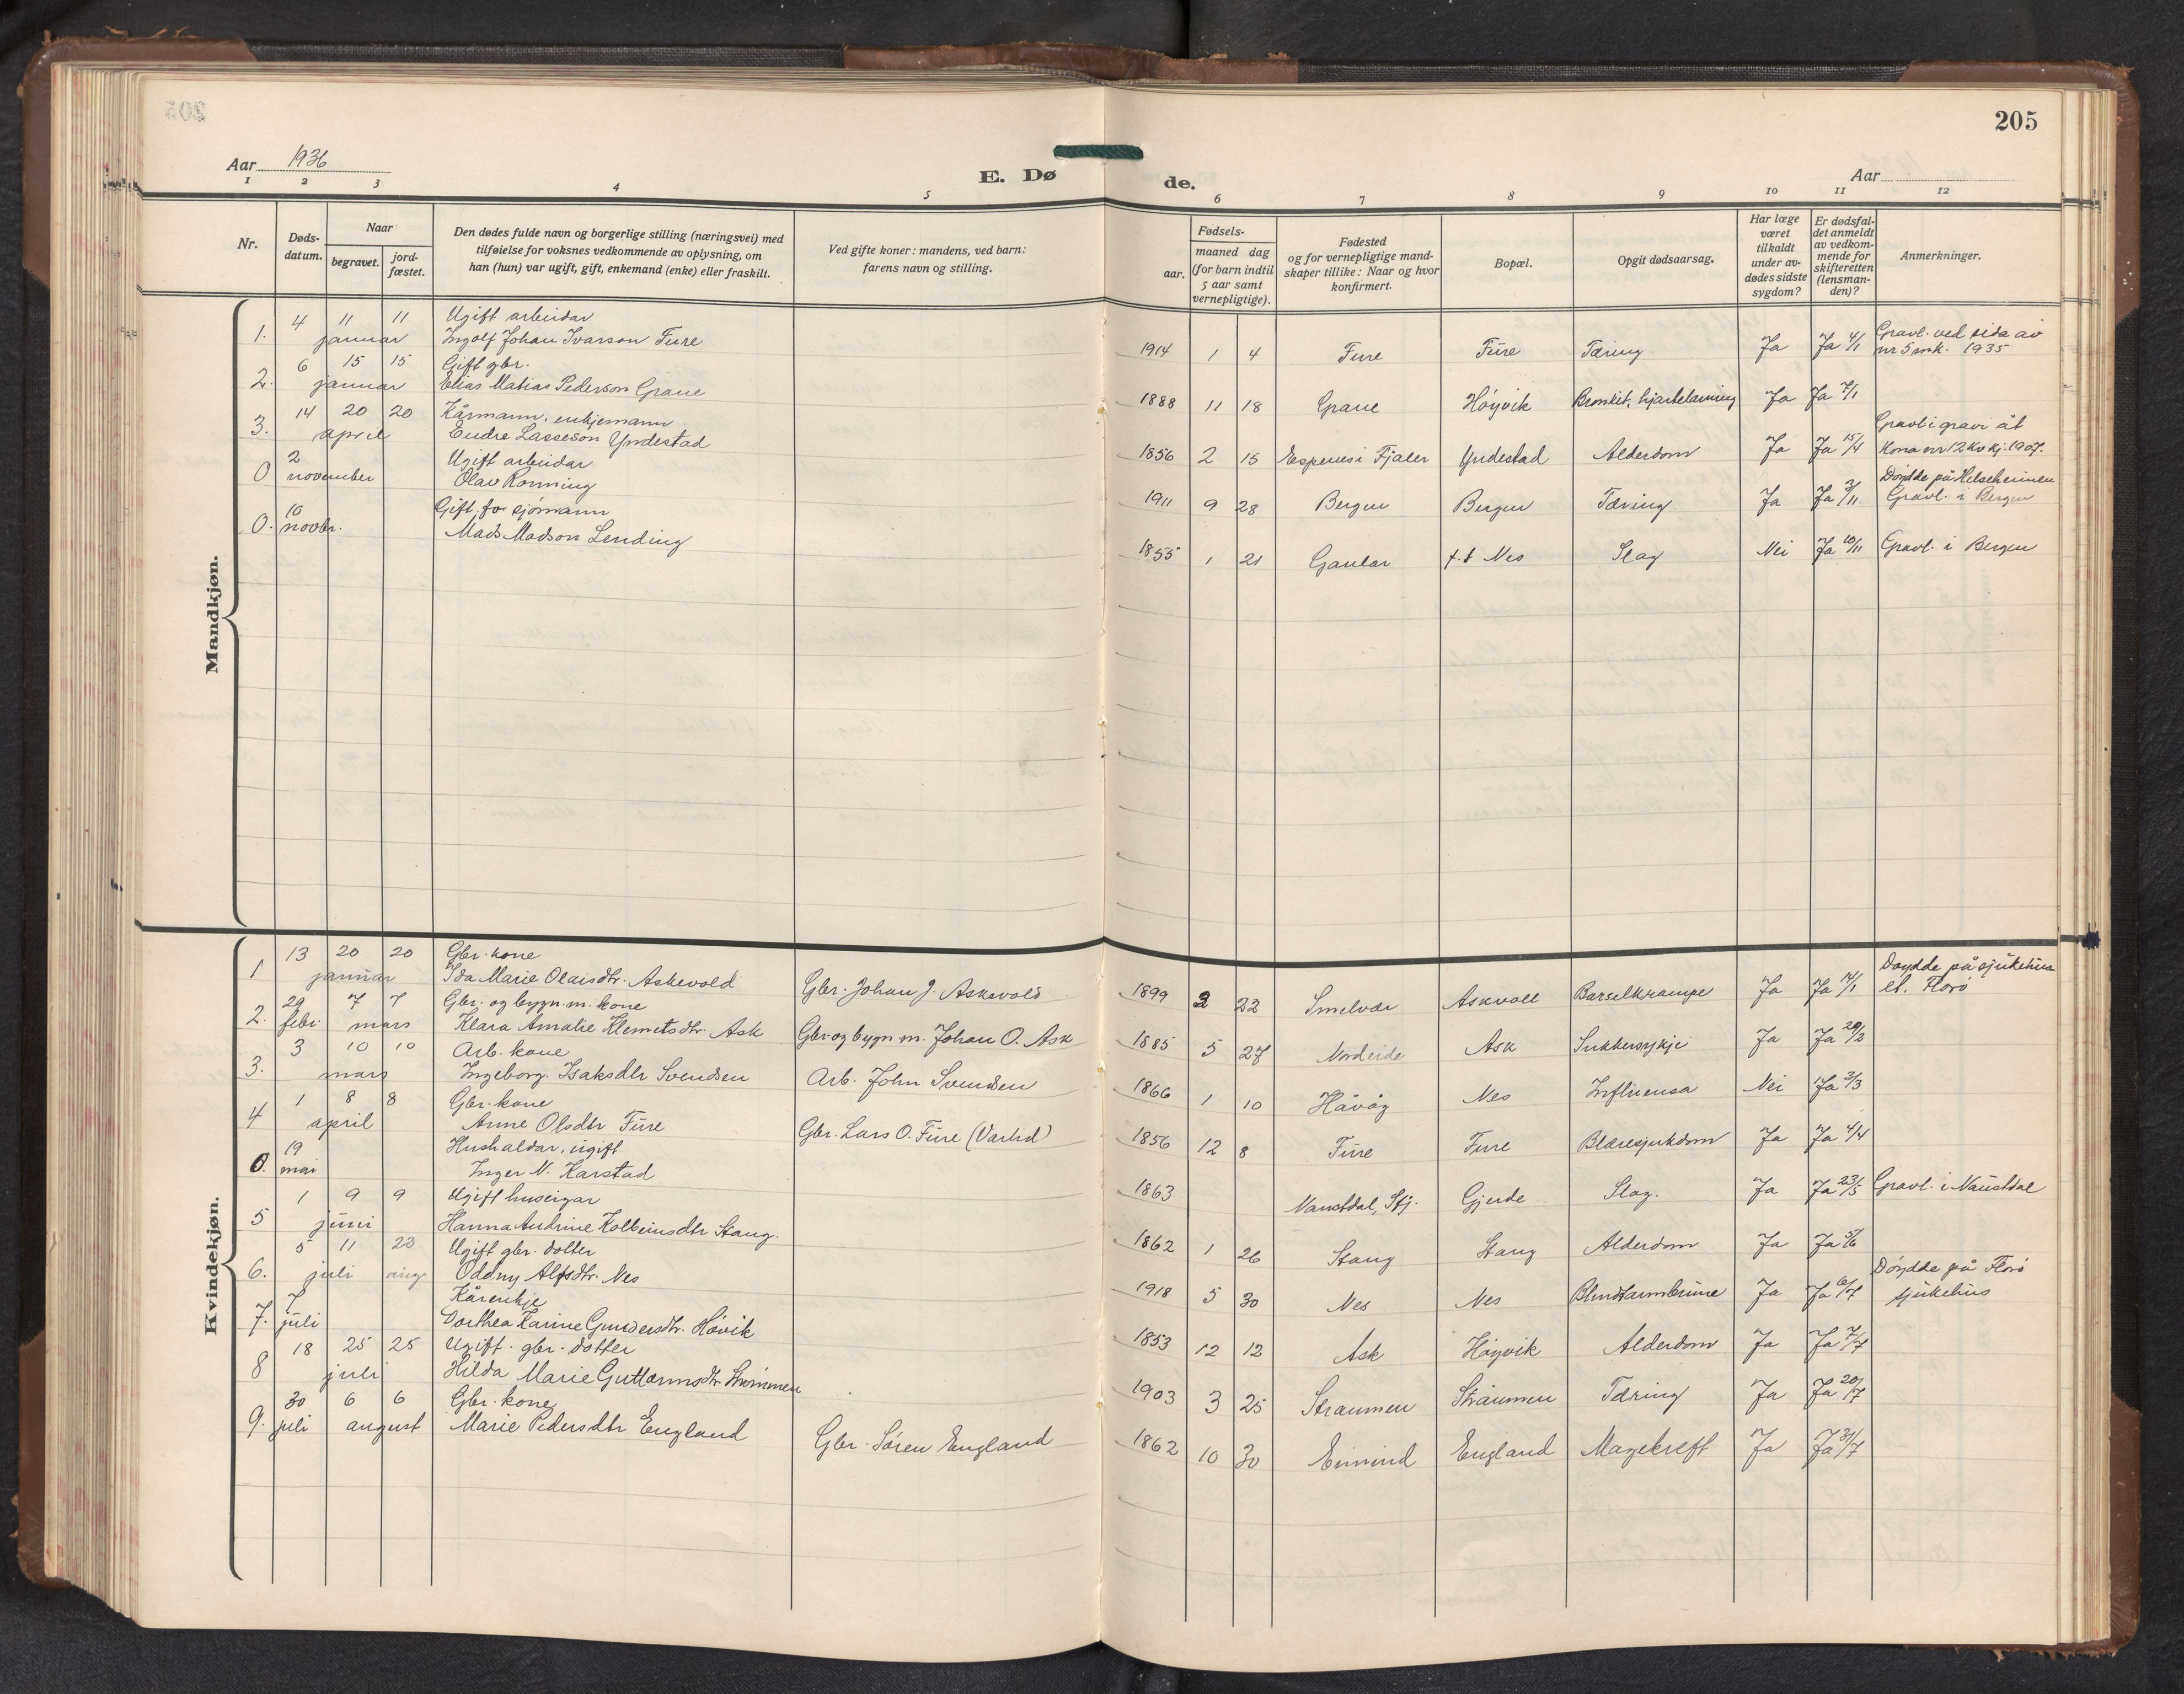 205
Aar 1936
E. Dø
de.
Aar
1 2 3 4 5 6 7 8 9 10 11 12
Nr.
Døds-datum.
Naar
begravet.
jord-fæstet.
Den dødes fulde navn og borgerlige stilling (næringsvei) med
tilføielse for voksnes vedkommende av oplysning, om
han (hun) var ugift, gift, enkemand (enke) eller fraskilt.
Ved gifte koner: mandens, ved barn:
farens navn og stilling.
Fødsels-
aar.
maaned dag
(for barn indtil
5 aar samt
vernepligtige).
Fødested
og for vernepligtige mand-
skaper tillike: Naar og hvor
konfirmert.
Bopæl.
Opgit dødsaarsag.
Har læge
været
tilkaldt
under av-
dødes sidste
sygdom?
Er dødsfal-
det anmeldt
av vedkom-
mende for
skifteretten
(lensman-
den)?
Anmerkninger.
Mandkjøn.
1. 4 11 11 januar Ugift arbeidar
Ingolf Johan Ivarson Fure 1914 1 4 Fure Fure Tæring Ja Ja 4/1 Gravl. ved sida av
nr 5 mk. 1935
2. 6 15 15 januar Gift gbr.
Elias Matias Pederson Grane 1888 11 18 Grane Høyvik Bronkit, hjartelaming Ja Ja 7/1
3. 14 20 20 april Kårmann, enkjemann
Endre Lasseson Yndestad 1856 2 15 Espenes i Fjaler Yndestad Alderdom Ja Ja 15/4 Gravl i gravi åt
Kona nr 12 kv kj. 1907.
0 2 november Ugift arbeidar
Olav Ronning 1911 9 28 Bergen Bergen Tæring Ja Ja 3/11 Døydde på Helseheimen
Gravl. i Bergen
0. 10 novbr. Gift, fv. sjømann
Mads Madson Lending 1855 1 21 Gaular f.t Nes Slag Nei Ja 10/11 Gravl. i Bergen
Kvindekjøn.
1 13 20 20 januar Gbr. kone
Ida Marie Olaisdtr. Askevold Gbr. Johan J. Askevold 1899 2 22 Smelvær Askvoll Barselkrampe Ja Ja 14/1 Døydde på sjukehus
et. Florø
2. 29 febr. 7 7 mars Gbr. og bygn. m. kone
Klara Amalie Klemetsdtr. Ask Gbr og bygn m. Johan O. Ask 1885 5 27 Nordeide Ask Sukkersykje Ja Ja 29/2
3. 3 10 10 mars Arb. kone
Ingeborg Isaksdtr Svendsen Arb. John Svendsen 1866 1 10 Håvåg Nes Influensa Nei Ja 3/3
4 1 8 8 april Gbr. kone
Anne Olsdtr Fure Gbr. Lars O. Fure (Varlid) 1856 12 8 Fure Fure Blæresjukdom Ja Ja 4/4
0. 19 mai Hushaldar, ugift
Inger N. Karstad 1863 Naustdal, Sfj. Gjerde Slag. Ja Ja 23/5 Gravl. i Naustdal
5 1 9 9 juni Ugift huseigar
Hanna Andrine Kolbeinsdtr Stang. 1862 1 26 Stang Stang Alderdom Ja Ja 5/6
6. 5 11 juli 23 aug Ugift gbr. dotter
Oddny Alfsdtr. Nes 1918 5 30 Nes Nes Blindtarmbrune Ja Ja 6/7 Døydde på Florø
sjukehus
7. 7 juli Kårenkje
Dorthea Karine Gundersdtr. Høvik 1853 12 12 Ask Høyvik Alderdom Ja Ja 7/7
8 18 25 25 juli Ugift. gbr. dotter
Hilda Marie Guttormsdtr Straumen 1903 3 25 Straumen Straumen Tæring Ja Ja 20/7
9. 30 juli 6 6 august Gbr. kone
Marie Pedersdtr England Gbr. Søren England 1862 10 30 Eimind England Magekreft Ja Ja 31/7